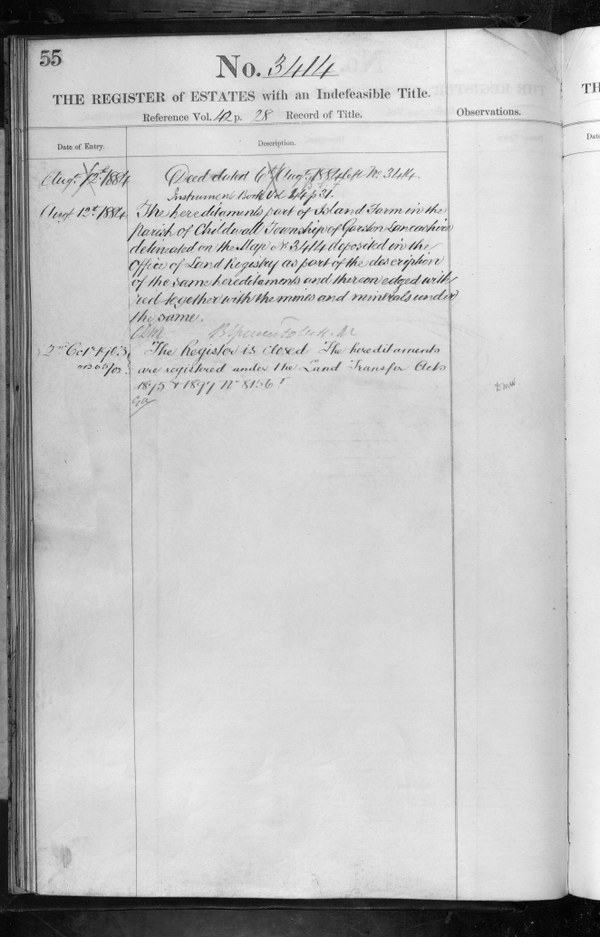 55
No. 3414
THE REGISTER of ESTATES with an Indefeasible Title.
Reference Vol. 42 p. 28 Record of Title.
Observations.
Date of Entry.
Description.
Augt 12th 1884
Deed dated 6th Augt 1884 No 3414.
Instrument Book Vol 24 p 31.
Augt 13th 1884
The hereditaments part of Island Farm in the
Parish of Childwall Township of Garston Lancashire
delineated on the Map No 3414 deposited in the
Office of Land Registry as part of the description
of the same hereditaments and thereon edged with
red together with the mines and minerals under
the same.
2nd Oct 1903
The Register is closed The hereditaments
are registered under the Land Transfer Acts
1875 & 1897 No 8156
TH
Date